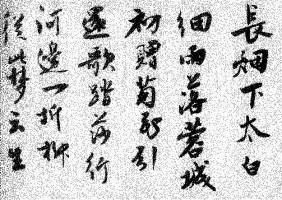 長烟下太白
細雨落蓉城
初贈菊
遂歌踏莎行
河邊一折柳
從此夢云生